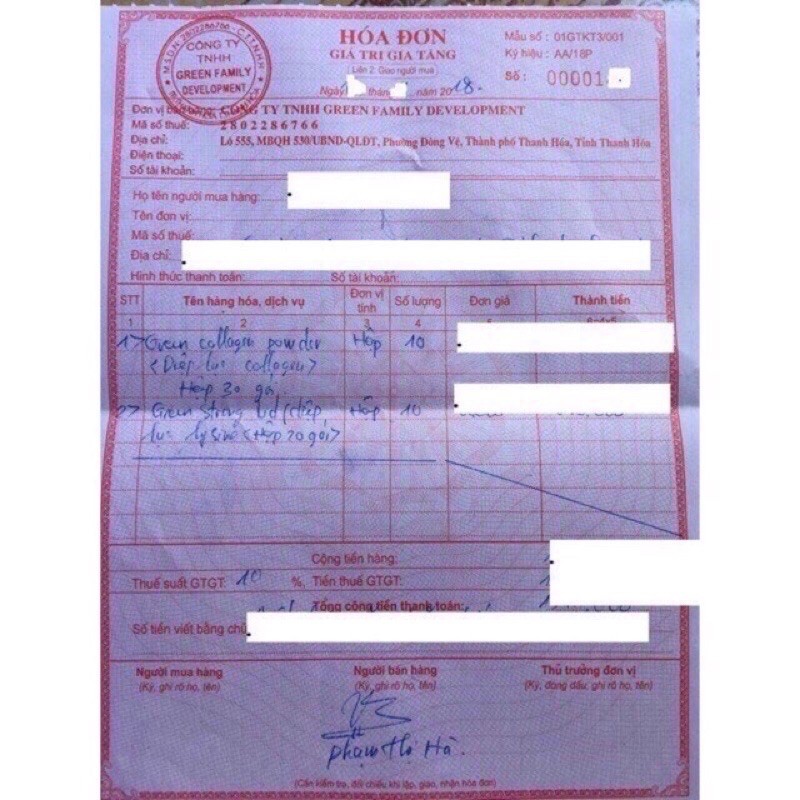 CÔNG TY
TNHH
GREEN FAMILY
DEVELOPMENT
HÓA ĐƠN
GIÁ TRỊ GIA TĂNG
Liên 2: Giao người mua
Ngày tháng năm 2018
Mẫu số : 01GTKT3/001
Ký hiệu : AA/18P
Số : 00001
Đơn vị bán hàng: CÔNG TY TNHH GREEN FAMILY DEVELOPMENT
Mã số thuế: 2802286766
Địa chỉ: Lô 555, MBQH 530/UBND-QLĐT, Phường Đông Vệ, Thành phố Thanh Hóa, Tỉnh Thanh Hóa
Điện thoại:
Số tài khoản:
Họ tên người mua hàng:
Tên đơn vị:
Mã số thuế:
Địa chỉ:
Hình thức thanh toán: Số tài khoản:
STT Tên hàng hóa, dịch vụ Đơn vị tính Số lượng Đơn giá Thành tiền
1 2 3 4
1> Green collagen powder Hộp 10
<Diệp lục collagen>
Hộp 30 gói
2> Green Strong kid (diệp Hộp 10
lục lysine <Hộp 20 gói>
Cộng tiền hàng:
Thuế suất GTGT: 10 %, Tiền thuế GTGT:
Tổng cộng tiền thanh toán:
Số tiền viết bằng chữ
Người mua hàng Người bán hàng Thủ trưởng đơn vị
(Ký, ghi rõ họ, tên) (Ký, ghi rõ họ, tên) (Ký, đóng dấu, ghi rõ họ, tên)
Phạm Thị Hà.
(Cần kiểm tra, đối chiếu khi lập, giao, nhận hóa đơn)